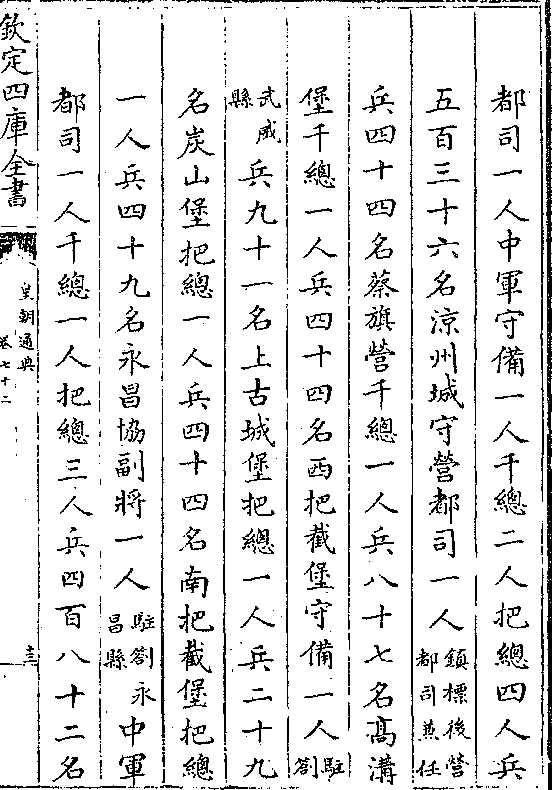 都司一人中軍守備一人千總二人把總四人兵
五百三十六名涼州城守營都司一人鎮標後營都司兼任
兵四十四名蔡旗營千總一人兵八十七名髙溝
堡千總一人兵四十四名西把截堡守備一人駐劄
武威縣兵九十一名上古城堡把總一人兵二十九
名炭山堡把總一人兵四十四名南把截堡把總
一人兵四十九名永昌協副將一人駐劄永昌縣中軍
都司一人千總一人把總三人兵四百八十二名
欽定四庫全書
皇朝通典
卷七十二
十三